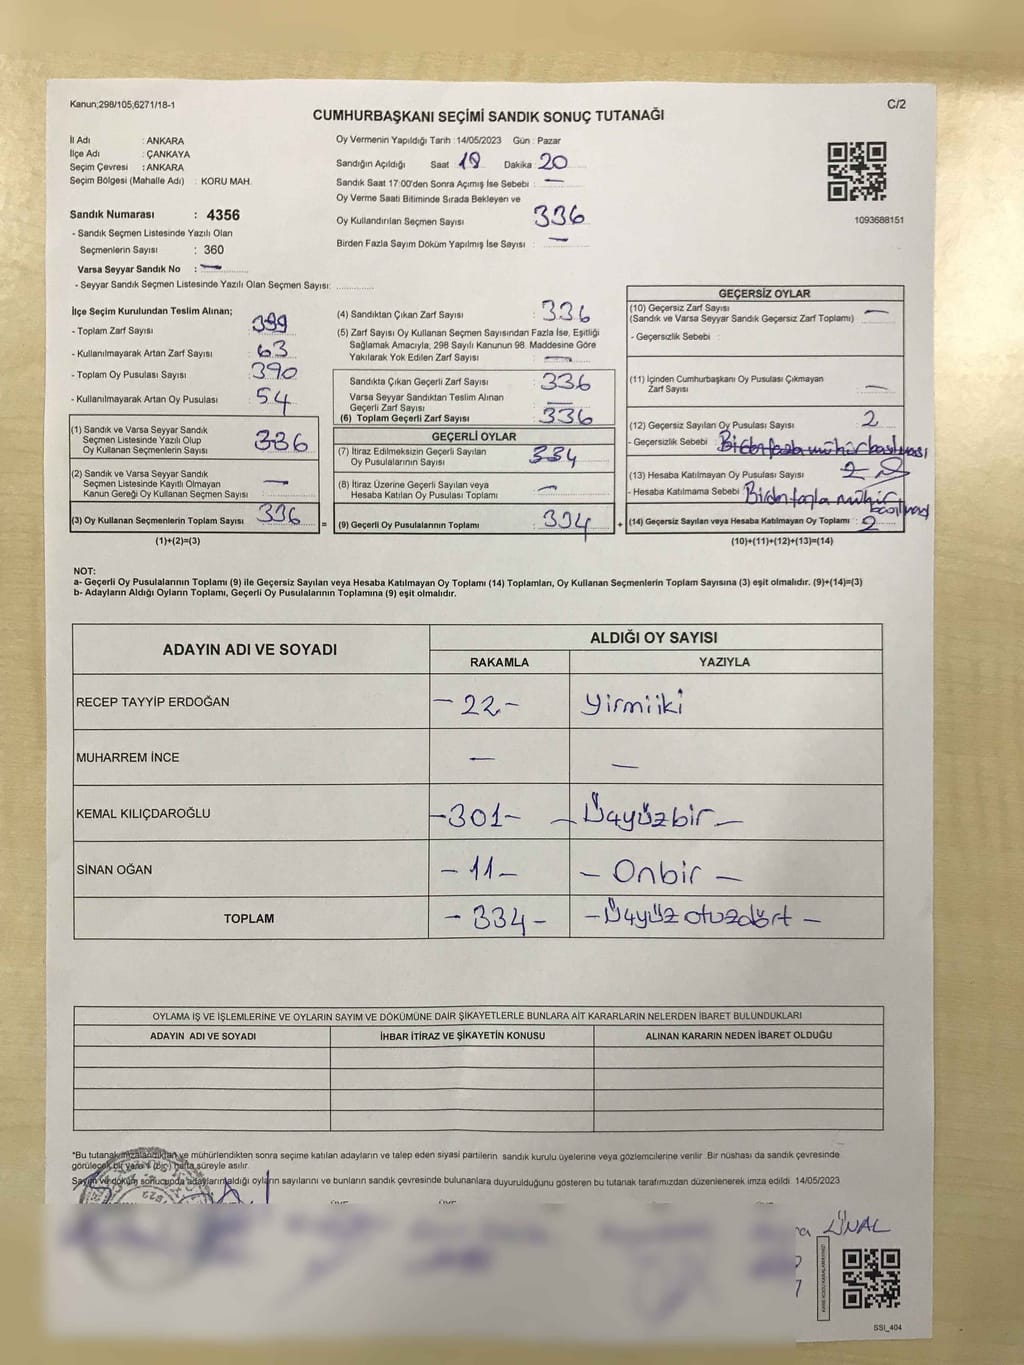 Kanun;298/105,6271/18-1
C/2
CUMHURBAŞKANI SEÇİMİ SANDIK SONUÇ TUTANAĞI
İl Adı : ANKARA
İlçe Adı : ÇANKAYA
Seçim Çevresi : ANKARA
Seçim Bölgesi (Mahalle Adı) : KORU MAH.
Sandık Numarası : 4356
- Sandık Seçmen Listesinde Yazılı Olan
Seçmenlerin Sayısı : 360
Varsa Seyyar Sandık No : —
- Seyyar Sandık Seçmen Listesinde Yazılı Olan Seçmen Sayısı:
Oy Vermenin Yapıldığı Tarih : 14/05/2023 Gün : Pazar
Sandığın Açıldığı Saat Dakika : 20
Sandık Saat 17:00'den Sonra Açımış İse Sebebi : —
Oy Verme Saati Bitiminde Sırada Bekleyen ve
Oy Kullandırılan Seçmen Sayısı 336
Birden Fazla Sayım Döküm Yapılmış İse Sayısı : —
1093688151
İlçe Seçim Kurulundan Teslim Alınan;
- Toplam Zarf Sayısı : 399
- Kullanılmayarak Artan Zarf Sayısı : 63
- Toplam Oy Pusulası Sayısı : 390
- Kullanılmayarak Artan Oy Pusulası : 54
(1) Sandık ve Varsa Seyyar Sandık
Seçmen Listesinde Yazılı Olup
Oy Kullanan Seçmenlerin Sayısı : 336
(2) Sandık ve Varsa Seyyar Sandık
Seçmen Listesinde Kayıtlı Olmayan
Kanun Gereği Oy Kullanan Seçmen Sayısı : —
(3) Oy Kullanan Seçmenlerin Toplam Sayısı : 336 =
(1)+(2)=(3)
(4) Sandıktan Çıkan Zarf Sayısı : 336
(5) Zarf Sayısı Oy Kullanan Seçmen Sayısından Fazla İse, Eşitliği
Sağlamak Amacıyla, 298 Sayılı Kanunun 98. Maddesine Göre
Yakılarak Yok Edilen Zarf Sayısı : —
Sandıkta Çıkan Geçerli Zarf Sayısı : 336
Varsa Seyyar Sandıktan Teslim Alınan
Geçerli Zarf Sayısı : —
(6) Toplam Geçerli Zarf Sayısı : 336
GEÇERLİ OYLAR
(7) İtiraz Edilmeksizin Geçerli Sayılan
Oy Pusulalarının Sayısı : 334
(8) İtiraz Üzerine Geçerli Sayılan veya
Hesaba Katılan Oy Pusulası Toplamı : —
(9) Geçerli Oy Pusulalarının Toplamı : 334 +
GEÇERSİZ OYLAR
(10) Geçersiz Zarf Sayısı : —
(Sandık ve Varsa Seyyar Sandık Geçersiz Zarf Toplamı)
- Geçersizlik Sebebi :
(11) İçinden Cumhurbaşkanı Oy Pusulası Çıkmayan
Zarf Sayısı : —
(12) Geçersiz Sayılan Oy Pusulası Sayısı : 2
- Geçersizlik Sebebi : Birden fazla mühür basılması
(13) Hesaba Katılmayan Oy Pusulası Sayısı 2
- Hesaba Katılmama Sebebi : Birden fazla mühür
(14) Geçersiz Sayılan veya Hesaba Katılmayan Oy Toplamı : 2
(10)+(11)+(12)+(13)=(14)
NOT:
a- Geçerli Oy Pusulalarının Toplamı (9) ile Geçersiz Sayılan veya Hesaba Katılmayan Oy Toplamı (14) Toplamları, Oy Kullanan Seçmenlerin Toplam Sayısına (3) eşit olmalıdır. (9)+(14)=(3)
b- Adayların Aldığı Oyların Toplamı, Geçerli Oy Pusulalarının Toplamına (9) eşit olmalıdır.
ADAYIN ADI VE SOYADI ALDIĞI OY SAYISI
RAKAMLA YAZIYLA
RECEP TAYYİP ERDOĞAN - 22 - Yirmiiki
MUHARREM İNCE — —
KEMAL KILIÇDAROĞLU - 301 - - Üçyüzbir -
SİNAN OĞAN - 11 - - Onbir -
TOPLAM - 334 - - Üçyüz otuzdört -
OYLAMA İŞ VE İŞLEMLERİNE VE OYLARIN SAYIM VE DÖKÜMÜNE DAİR ŞİKAYETLERLE BUNLARA AİT KARARLARIN NELERDEN İBARET BULUNDUKLARI
ADAYIN ADI VE SOYADI İHBAR İTİRAZ VE ŞİKAYETİN KONUSU ALINAN KARARIN NEDEN İBARET OLDUĞU
*Bu tutanak imzalandıktan ve mühürlendikten sonra seçime katılan adayların ve talep eden siyasi partilerin sandık kurulu üyelerine veya gözlemcilerine verilir .Bir nüshası da sandık çevresinde
görülecek bir yere 1 (bir) hafta süreyle asılır.
Sayım ve döküm sonucunda adayların aldığı oyların sayılarını ve bunların sandık çevresinde bulunanlara duyurulduğunu gösteren bu tutanak tarafımızdan düzenlenerek imza edildi. 14/05/2023
ÜNAL
SSI_404